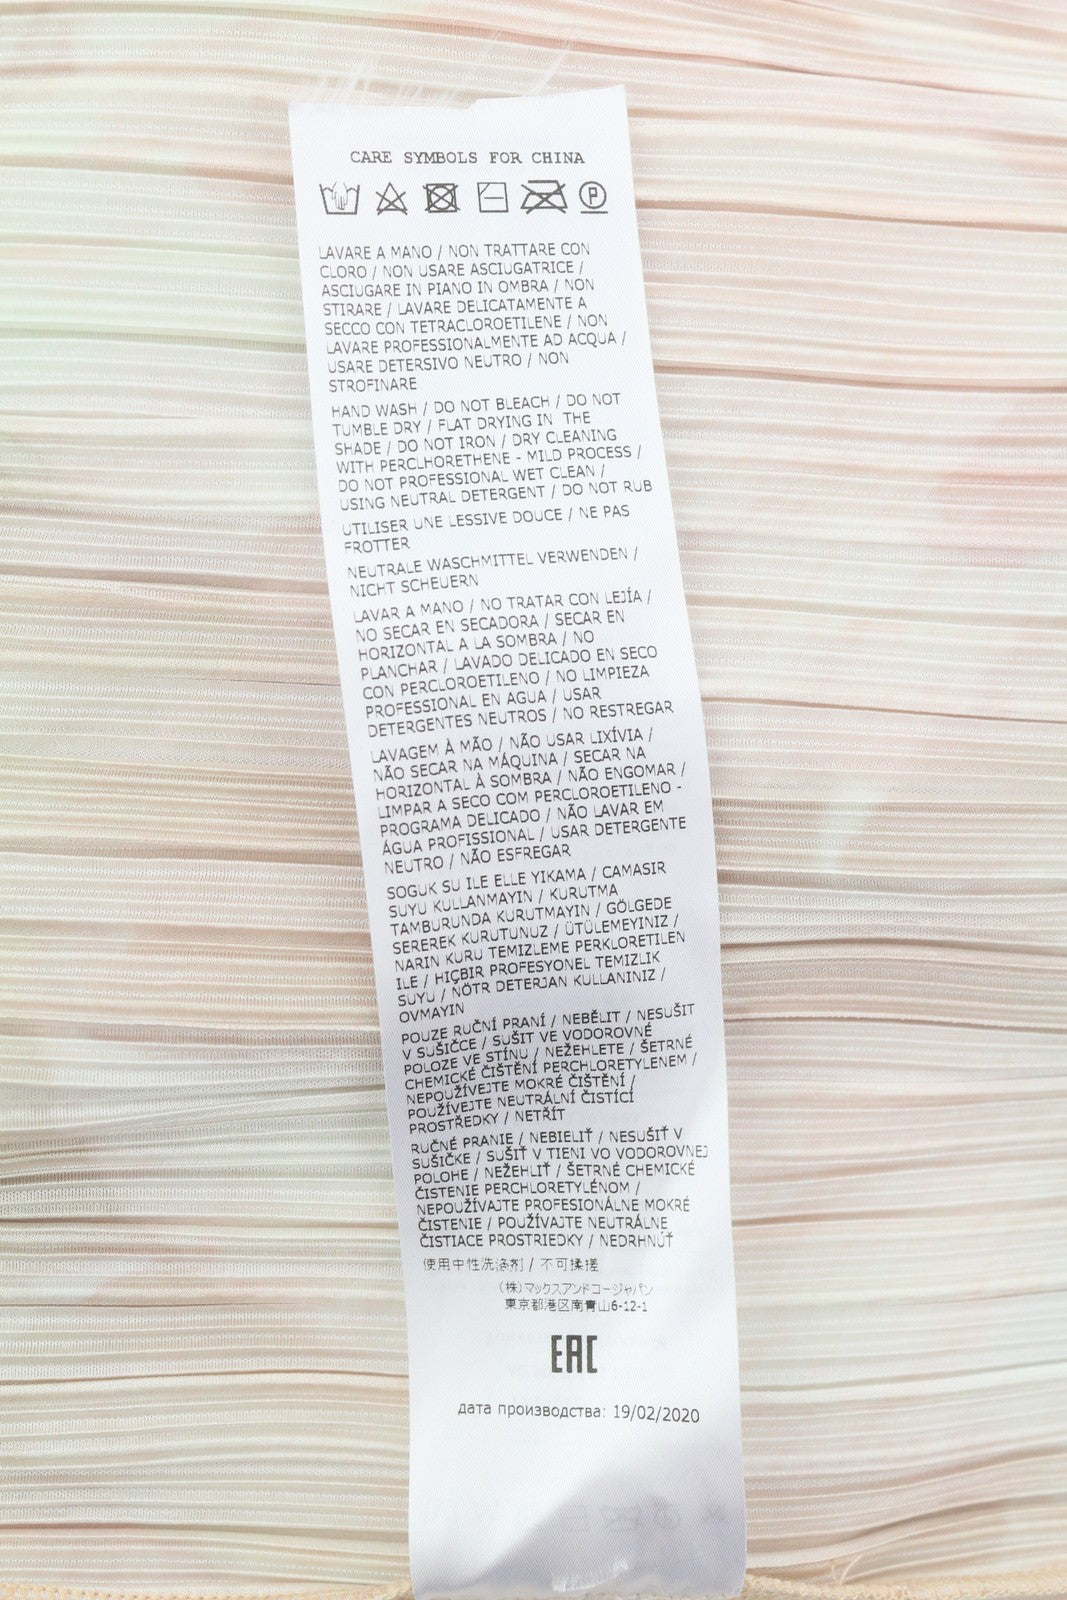 CARE SYMBOLS FOR CHINA
P
LAVARE A MANO / NON TRATTARE CON
CLORO / NON USARE ASCIUGATRICE /
ASCIUGARE IN PIANO IN OMBRA / NON
STIRARE / LAVARE DELICATAMENTE A
SECCO CON TETRACLOROETILENE / NON
LAVARE PROFESSIONALMENTE AD ACQUA /
USARE DETERSIVO NEUTRO / NON
STROFINARE
HAND WASH / DO NOT BLEACH / DO NOT
TUMBLE DRY / FLAT DRYING IN THE
SHADE / DO NOT IRON / DRY CLEANING
WITH PERCLHORETHENE - MILD PROCESS /
DO NOT PROFESSIONAL WET CLEAN /
USING NEUTRAL DETERGENT / DO NOT RUB
UTILISER UNE LESSIVE DOUCE / NE PAS
FROTTER
NEUTRALE WASCHMITTEL VERWENDEN /
NICHT SCHEUERN
LAVAR A MANO / NO TRATAR CON LEJÍA /
NO SECAR EN SECADORA / SECAR EN
HORIZONTAL A LA SOMBRA / NO
PLANCHAR / LAVADO DELICADO EN SECO
CON PERCLOROETILENO / NO LIMPIEZA
PROFESSIONAL EN AGUA / USAR
DETERGENTES NEUTROS / NO RESTREGAR
LAVAGEM À MÃO / NÃO USAR LIXÍVIA /
NÃO SECAR NA MÁQUINA / SECAR NA
HORIZONTAL À SOMBRA / NÃO ENGOMAR /
LIMPAR A SECO COM PERCLOROETILENO -
PROGRAMA DELICADO / NÃO LAVAR EM
ÁGUA PROFISSIONAL / USAR DETERGENTE
NEUTRO / NÃO ESFREGAR
SOGUK SU ILE ELLE YIKAMA / CAMASIR
SUYU KULLANMAYIN / KURUTMA
TAMBURUNDA KURUTMAYIN / GÖLGEDE
SEREREK KURUTUNUZ / ÜTÜLEMEYINIZ /
NARIN KURU TEMIZLEME PERKLORETILEN
ILE / HIÇBIR PROFESYONEL TEMIZLIK
SUYU / NÖTR DETERJAN KULLANINIZ /
OVMAYIN
POUZE RUČNÍ PRANÍ / NEBĚLIT / NESUŠIT
V SUŠIČCE / SUŠIT VE VODOROVNÉ
POLOZE VE STÍNU / NEŽEHLETE / ŠETRNÉ
CHEMICKÉ ČIŠTĚNÍ PERCHLORETYLENEM /
NEPOUŽÍVEJTE MOKRÉ ČIŠTĚNÍ /
POUŽÍVEJTE NEUTRÁLNÍ ČISTÍCÍ
PROSTŘEDKY / NETŘÍT
RUČNÉ PRANIE / NEBIELIŤ / NESUŠIŤ V
SUŠIČKE / SUŠIŤ V TIENI VO VODOROVNEJ
POLOHE / NEŽEHLIŤ / ŠETRNÉ CHEMICKÉ
ČISTENIE PERCHLORETYLÉNOM /
NEPOUŽÍVAJTE PROFESIONÁLNE MOKRÉ
ČISTENIE / POUŽÍVAJTE NEUTRÁLNE
ČISTIACE PROSTRIEDKY / NEDRHNÚŤ
使用中性洗涤剂 / 不可揉搓
(株)マックスアンドコージャパン
東京都港区南青山6-12-1
EAC
дата производства: 19/02/2020